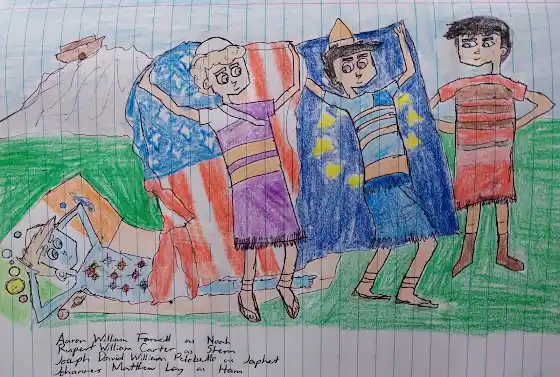 Aaron William Farrell as Noah
Rupert William Carter as Shem
Joseph David William Pilobello as Japhet
Johannes Matthew Lay as Ham